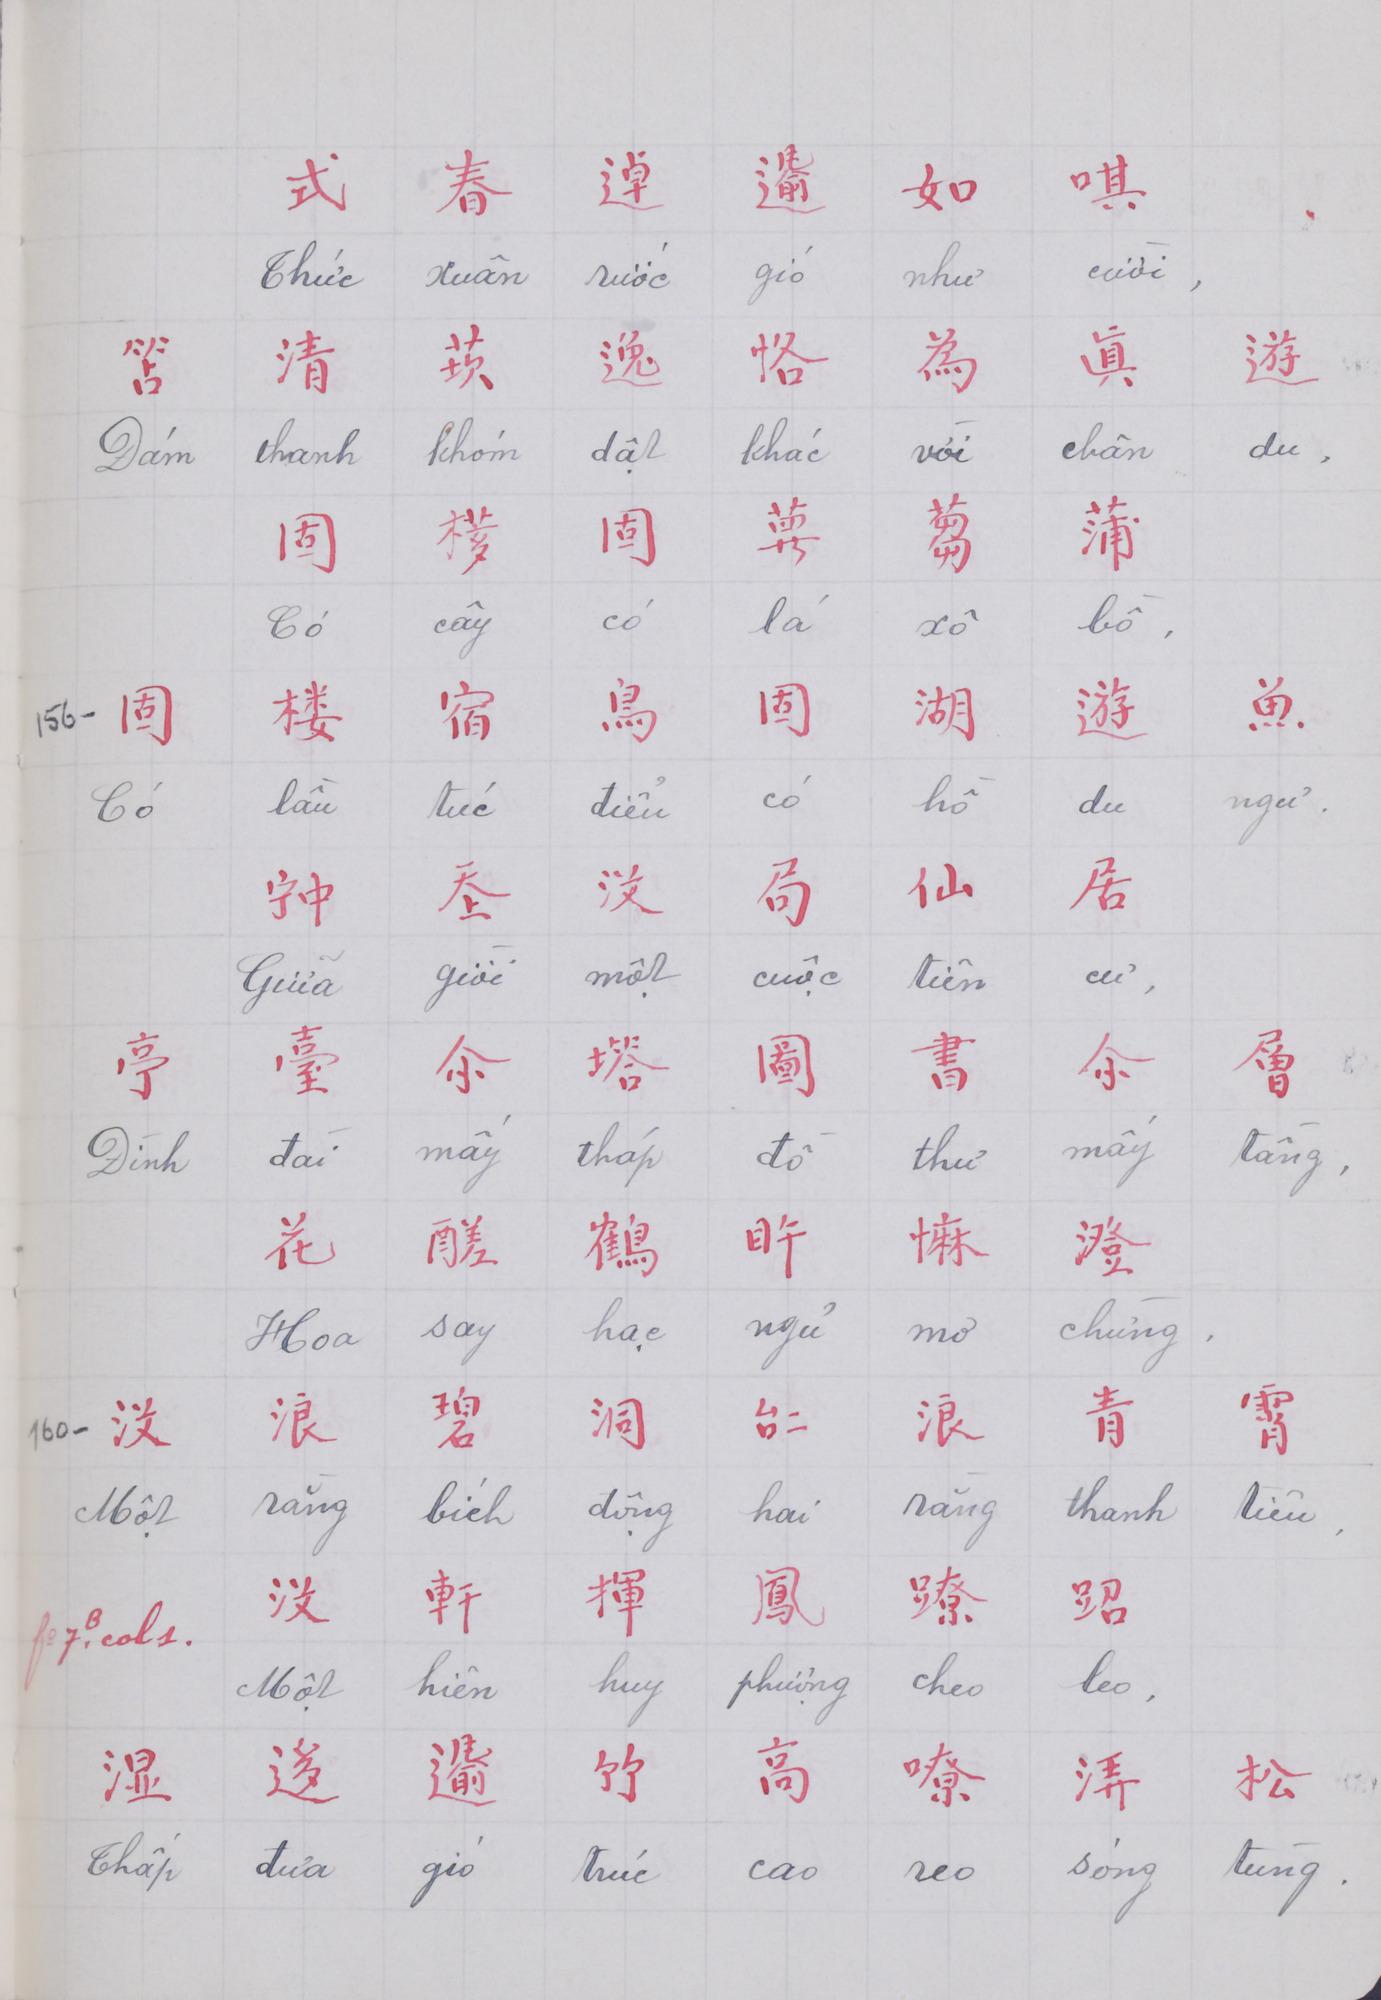 式 春 逴 𨔍 如 唭
Thức xuân rước gió như cười,
笘 清 莰 逸 恪 為 眞 遊
Dám thanh khóm dật khác với chân du,
固 𣘃 固 蘿 蒭 蒲
Có cây có lá xô bồ,
156- 固 楼 宿 鳥 固 湖 遊 魚
Có lầu túc điểu có hồ du ngư.
𡨌 𡗶 沒 局 仙 居
Giữa giời một cuộc tiên cư,
亭 臺 余 塔 圖 書 余 層
Đình đài mấy tháp đồ thư mấy tầng,
花 醝 鶴 𥄭 𢠩 澄
Hoa say hạc ngủ mơ chừng,
160- 沒 浪 碧 洞 𠄩 浪 青 霄
Một rằng bích động hai rằng thanh tiêu,
fo 7.B col 1. 沒 軒 揮 鳳 蹽 跆
Một hiên huy phượng cheo leo,
湿 迻 𨔍 竹 高 嘹 㳥 松
Thấp đưa gió trúc cao reo sóng tùng.